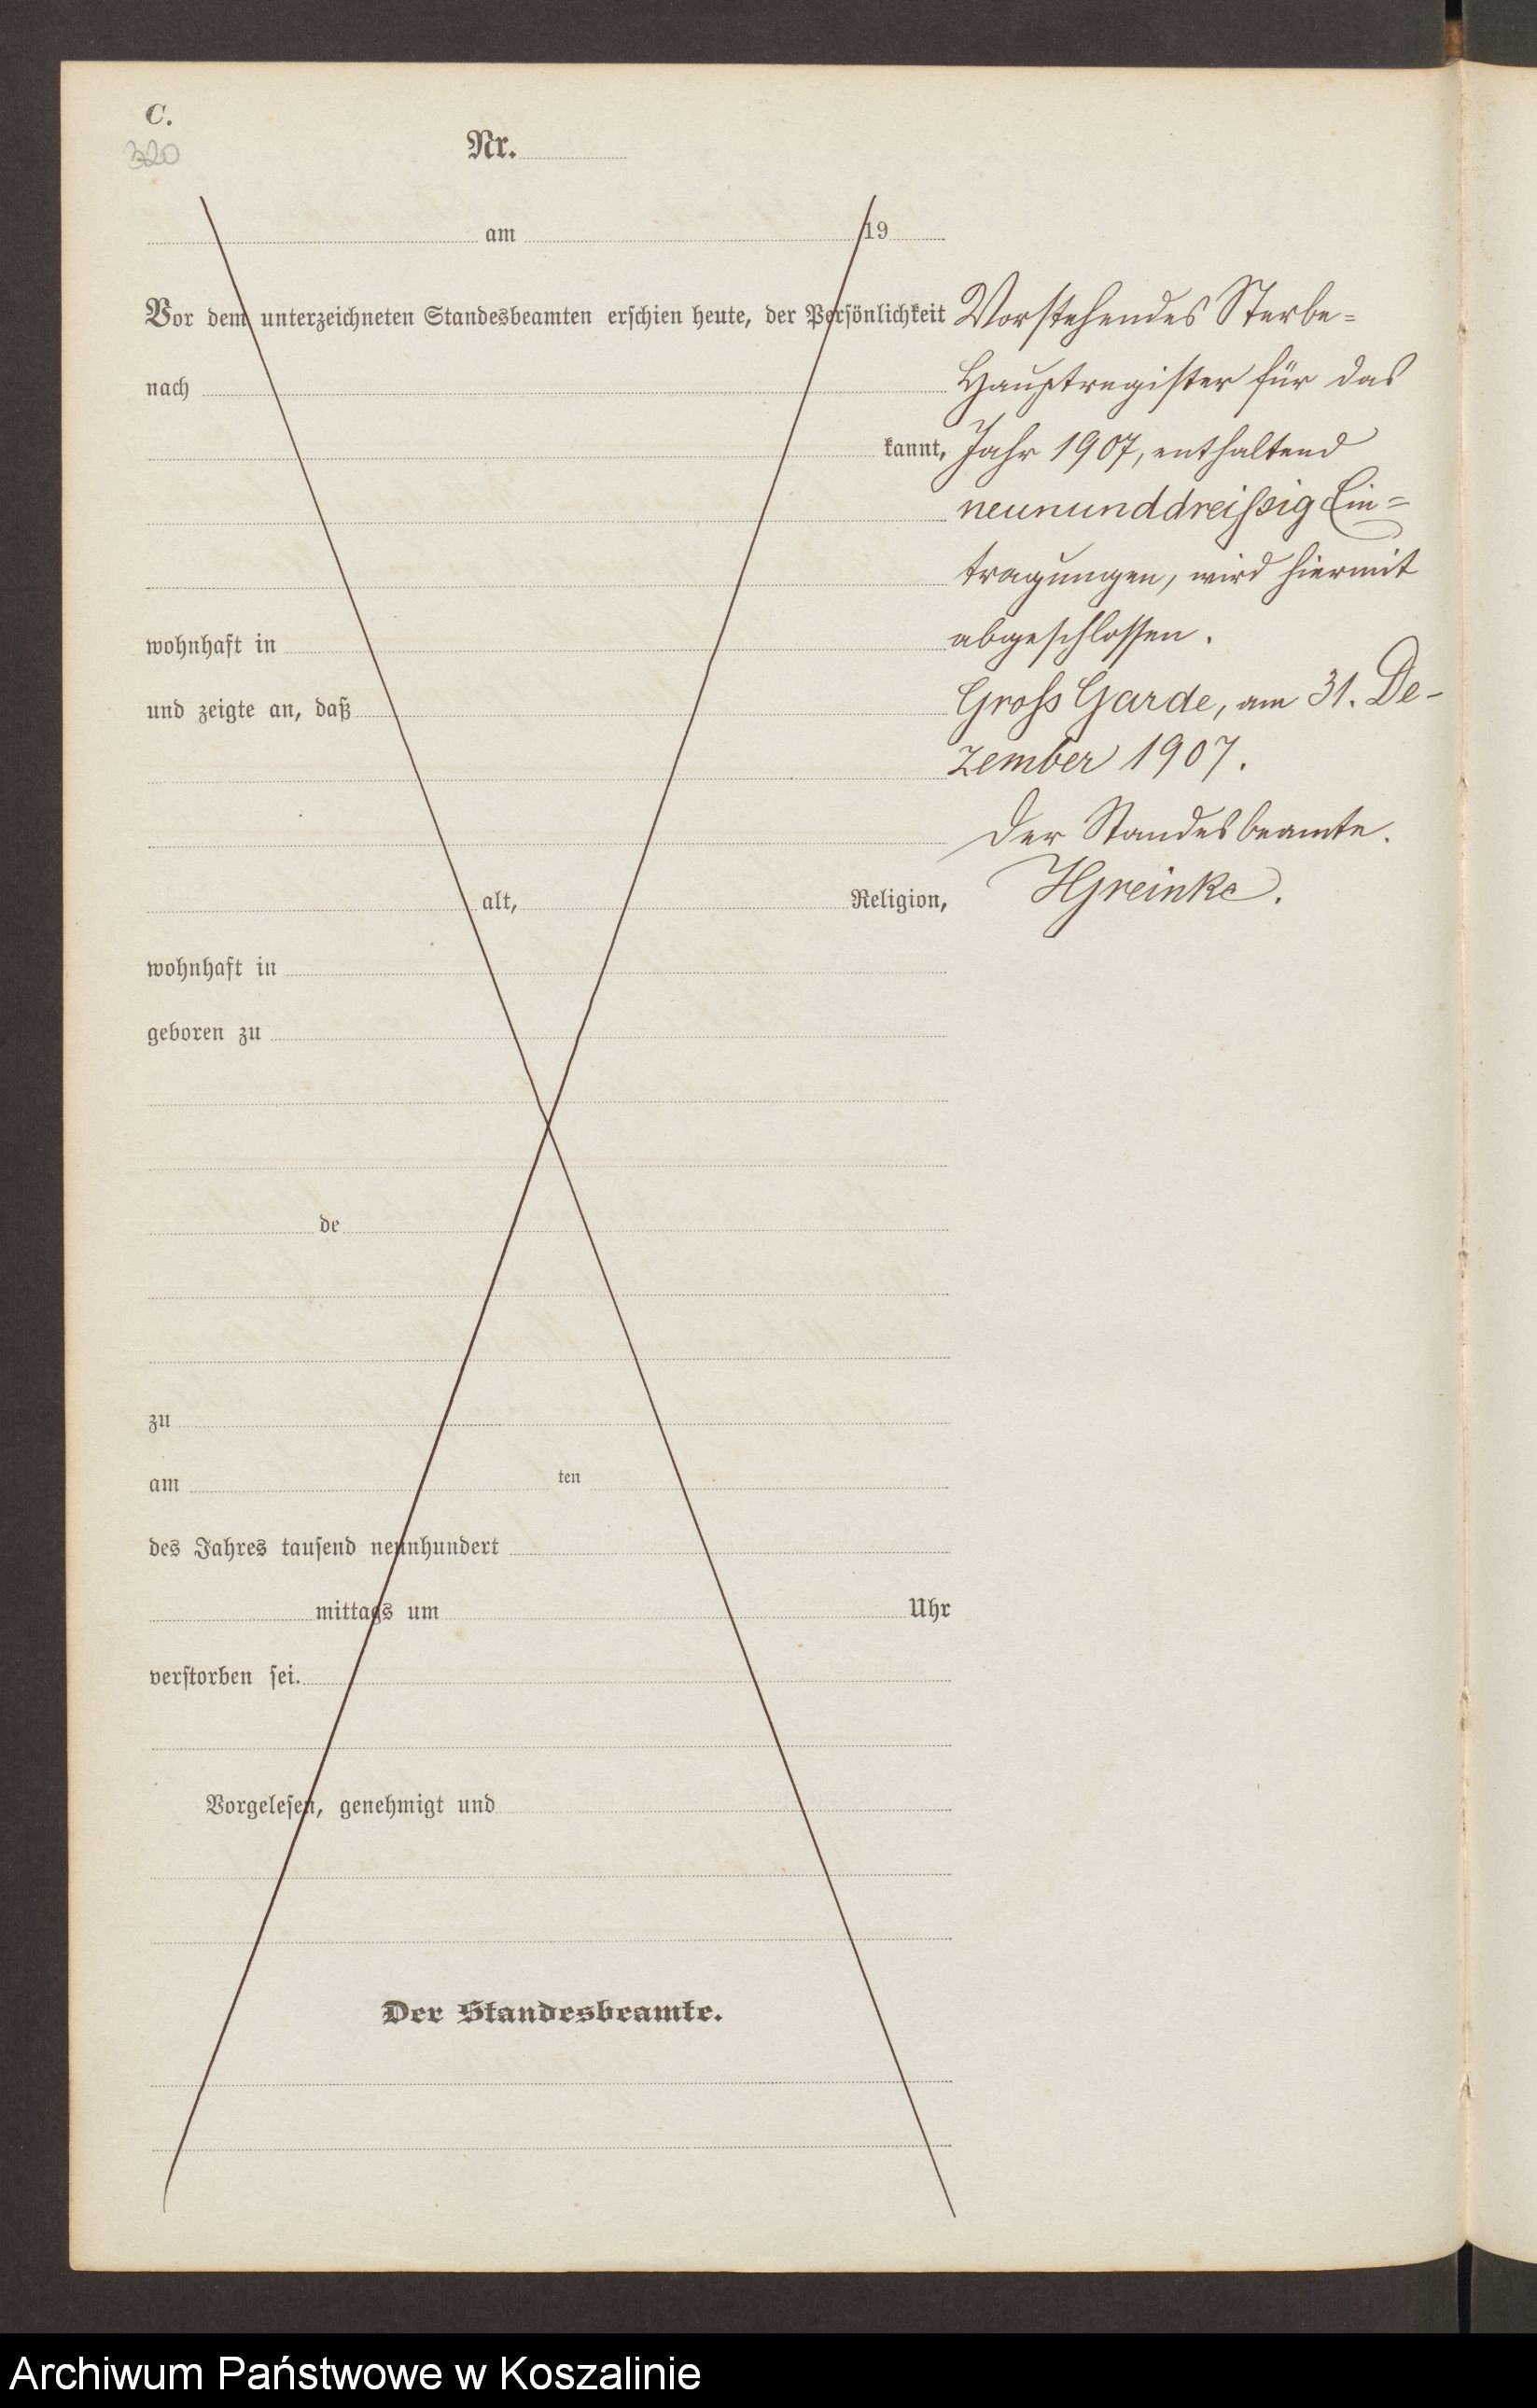 C.
320
Nr.
am 19
Vor dem unterzeichneten Standesbeamten erschien heute, der Persönlichkeit
nach
kannt,
wohnhaft in
und zeigte an, daß
alt, Religion,
wohnhaft in
geboren zu
de
zu
am ten
des Jahres tausend neunhundert
mittags um Uhr
verstorben sei.
Vorgelesen, genehmigt und
Der Standesbeamte.
Vorstehendes Sterbe=
Hauptregister für das
Jahr 1907, enthaltend
neununddreißig Ein=
tragungen, wird hiermit
abgeschlossen.
Groß Garde, am 31. De-
zember 1907.
Der Standesbeamte.
HGreinke.
Archiwum Państwowe w Koszalinie